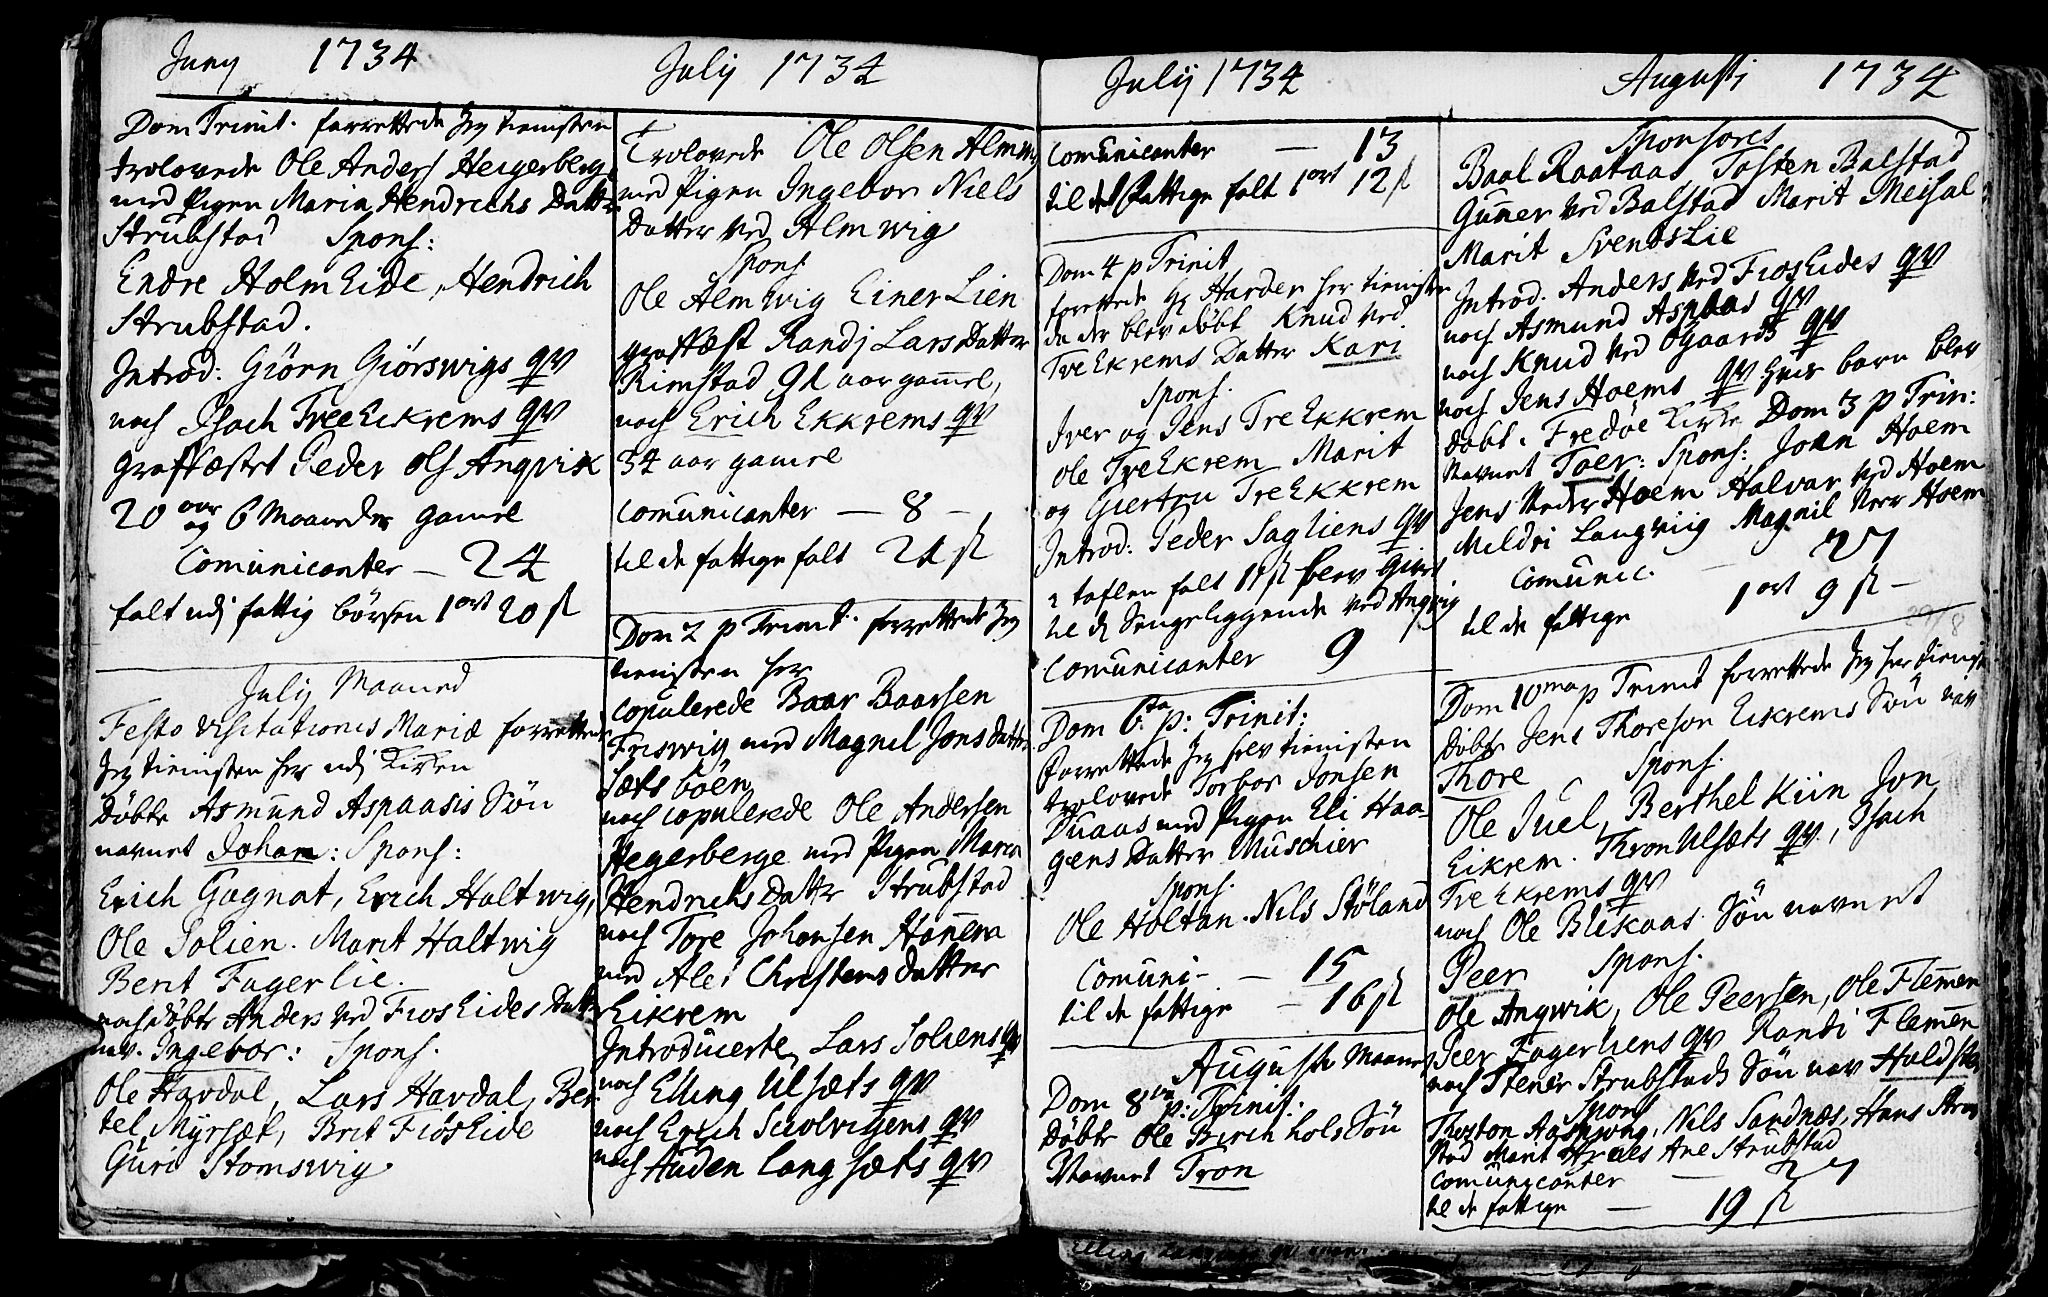 Juny 1734
Dom Trinit. forrettede Jeg tienisten
trolovede Ole Anders Heigerberg
med Pigen Maria Hendrichs Datter
Strubstad Spons:
Endre Holm Eide, Hendrich
Strubstad.
Introd: Giørn Giørswigs qv
noch Isach Tree Eikrems qv
graffæstet Peder Ols Angvik
20 aar og 6 Maaneder gamel
Comunicanter — 24
falt udj fattig børsen 1 ort 20 ß
July Maaned
Festo Visitationis Mariæ forrettede
Jeg tienisten her udj Kirken
Døbte Asmund Aspaasis Søn
navnet Johan: Spons:
Erich Gagnat, Erich Haltwig,
Ole Solien. Marit Haltwig
Berit Fagerlie.
noch døbte Anders ved Fioseides Datter
nav. Ingebor: Spons.
Ole Havdal, Lars Havdal, Ber
tel Myrsæt, Brit Fiøseide
Guri Stomswig
July 1734
Trolovede Ole Olsen Almwig
med Pigen Ingebor Niels
Datter ved Almwig
Spons
Ole Almwig Einer Lien
graffæst Randj Lars Datter
Rimstad 91 aar gamel,
noch Erich Ekkrems qv
34 aar gamel
comunicanter — 8 —
til de fattige falt 21 ß
Dom 2 p Trinit. forrettede Jeg
tienisten her
copulerede Baar Baarsen
Friswig med Magnil Jons datter
Sætsbøen
noch copulerede Ole Andersen
Hegerberge med Pigen Maren
Hendrichs datter Strubstad
noch Tore Johansen Honnem
med Ale Christens datter
Eikrem
Introducerte Lars Soliens qv
noch Elling Ulsæts qv
noch Erich Suolvigens qv
noch Auden Langsæts qv
July 1734
comunicanter — 13
til de Fattige falt 1 ort 12 ß
Dom 4 p Trinit
forrettede Hr Harder her tienisten
da der blev døbt Knud ved
Tre Ekrems Datter Kari
Spons.
Iver og Jens Tre Ekkrem
Ole Tre Ekrem Marit
og Giertru Tre Ekkrem
Introd: Peder Sagliens qv
i taflen falt 11 ß blev givet
til d Sengeliggende ved Angvig
comunicanter 9
Dom 6ta p: Trinit:
forrettede Jeg selv tienisten
trolovede Torbor Jonsen
Duaas med Pigen Eli Haa-
gens Datter Muschier
Spons.
Ole Holtan. Nils Støland
Comuni- — 15
til de fattige — 16 ß
Augusti Maaned
Dom 8va p: Trinit:
Døbte Ole Birchhols Søn
Navnet Tron
Augusti 1734
Sponsores
Baal Raataas Tosten Balstad
Gunner ved Balstad Marit Meisal
Marit Svendslie
Introd. Anders ved Fioseides qv
noch Asmund Aspaas qv
noch Knud ved Øgaards qv
noch Jens Hoems qv hvis barn blev
døbt i Fredøe Kirke Dom 3 p Trin:
Navnet Toer: Spons: Joen Hoem
Jens Neder Hoem Halvar ved Hoem
Meldri Langviig Magnil Neer Hoem
Comunic. — 27
til de fattige 1 ort 9 ß —
29/8
Dom 10ma p Trinit forrettede Jeg her tienist
døbte Jens Thoreson Eikrems Søn nav
Thore Spons.
Ole Juel, Berthel Kiin Jon
Eikrem. Thron Ulsæts qv., Isach
Tre Ekrems qv
noch Ole Blikaas Søn navnet
Peer Spons.
Ole Angwik, Ole Peersen, Ole Flemmen
Peer Fagerliens qv Randi Flemmen
noch Stener Strubstads Søn nav Hald
Spons
Thoston Nils Sandnæs, Hans Strub
stad Marit Ane Strubstad
comunicanter — 27
til de fattige — 19 ß